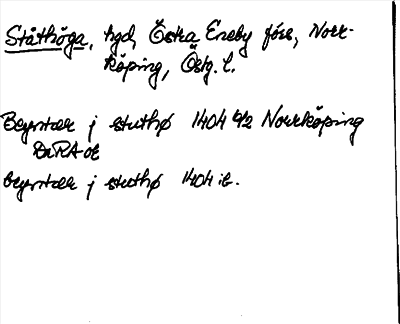 Ståthöga, hgd, Östra Eneby förs, Norr-
köping, Östg. l.
Beyntæe j stuthø 1404 4/2 Norrköping
DaRA or
beyntæe j stuthø 1404 ib.